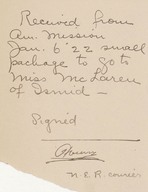 Received from
Am. Mission
Jan. 6 '22 small
package to go to
Miss McLaren
of Ismid —
Signed
N.E.R. courier